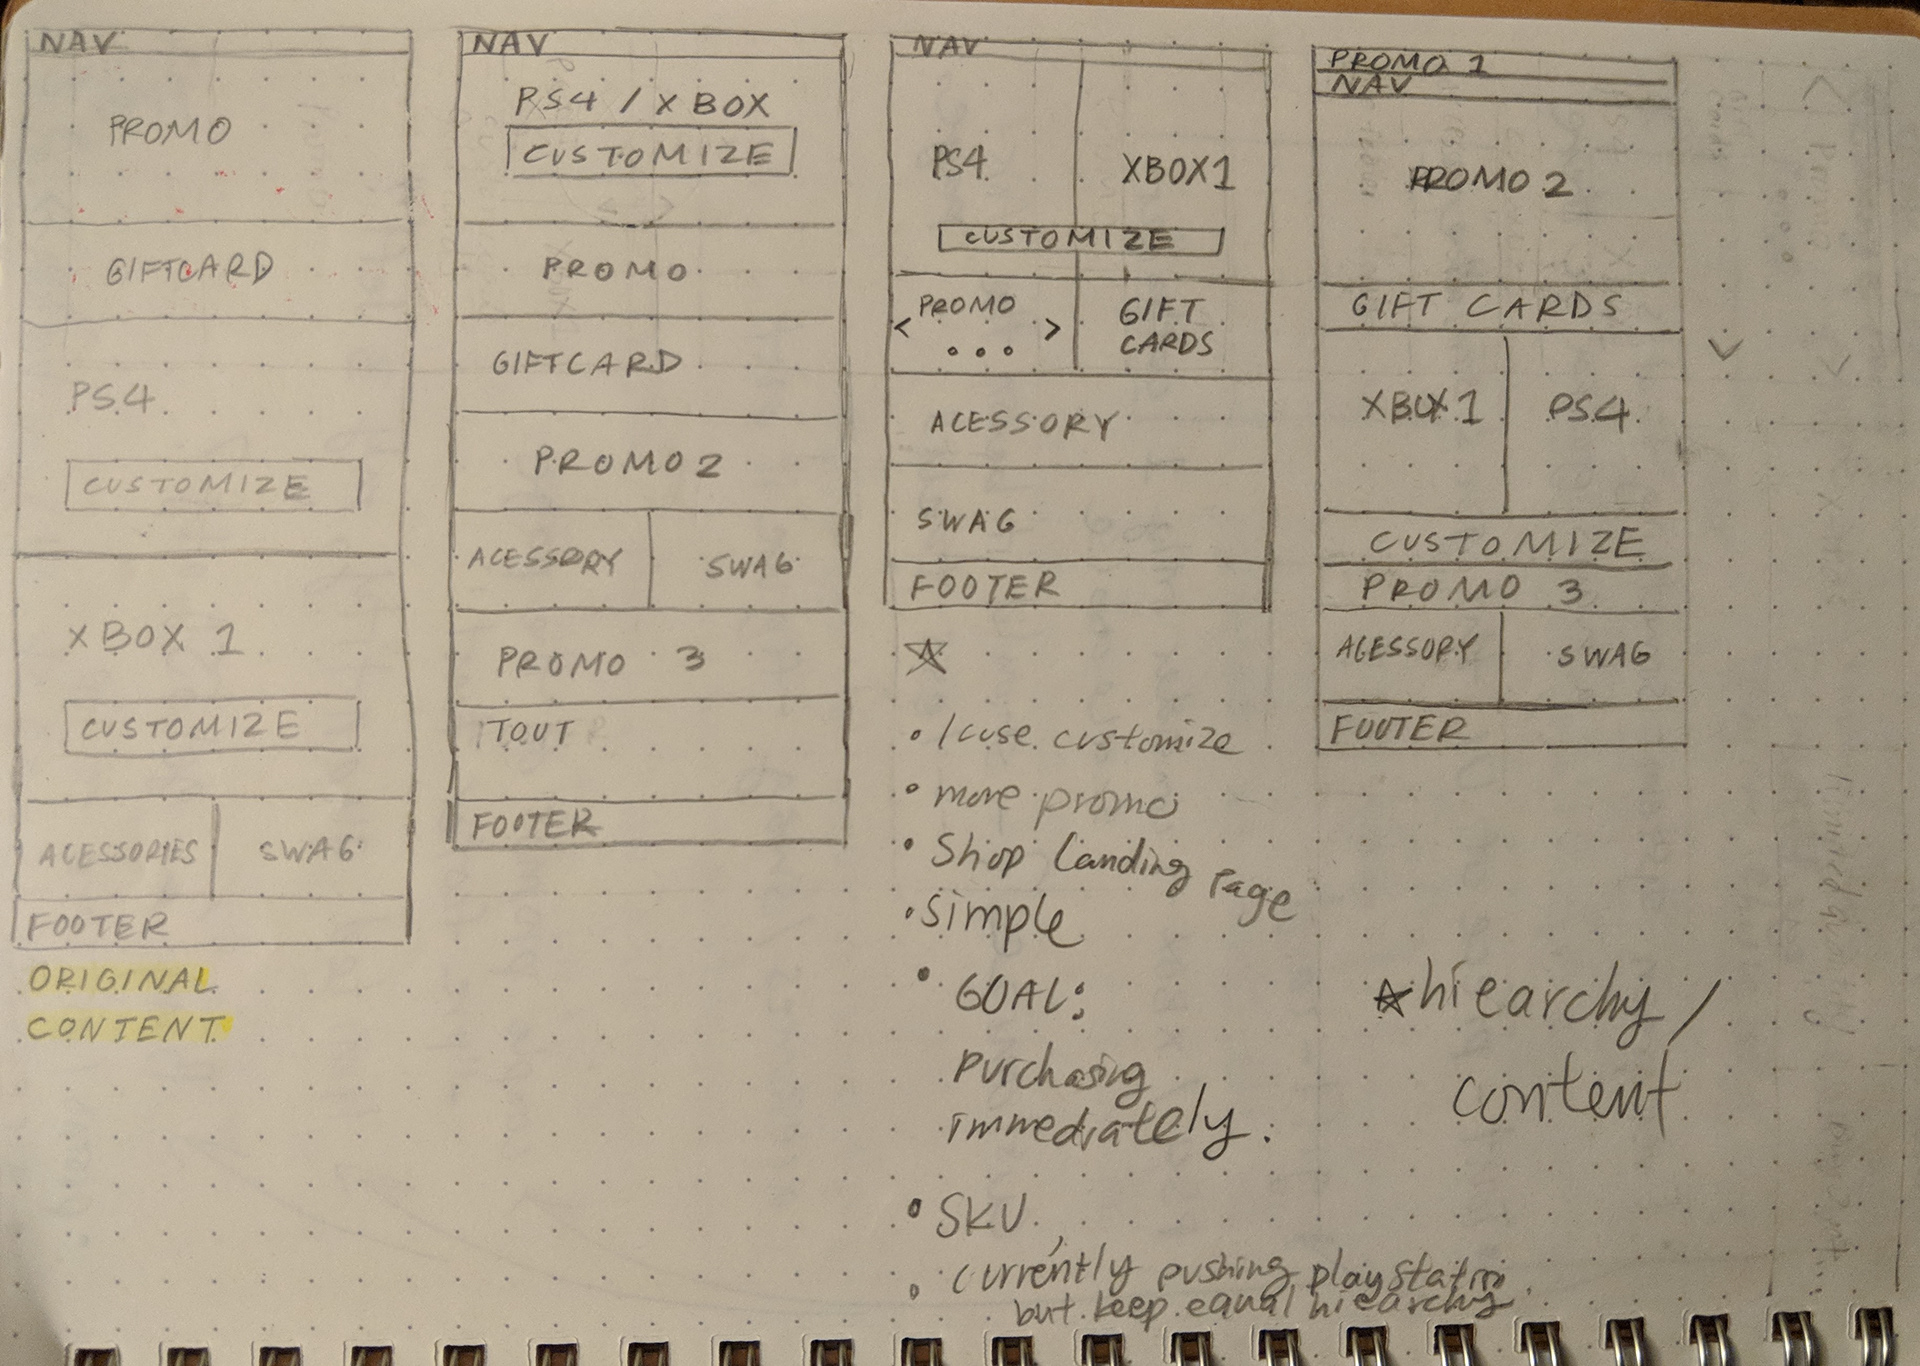 NAV
PROMO
GIFTCARD
PS4
CUSTOMIZE
XBOX 1
CUSTOMIZE
ACESSORIES SWAG
FOOTER
ORIGINAL
CONTENT
NAV
PS4 / XBOX
CUSTOMIZE
PROMO
GIFTCARD
PROMO 2
ACESSORY SWAG
PROMO 3
TOUT
FOOTER
NAV
PS4 XBOX1
CUSTOMIZE
PROMO
< >
GIFT
CARDS
ACESSORY
SWAG
FOOTER
customize
more promo
Shop Landing Page
Simple
GOAL:
purchasing
immediately.
SKU
currently pushing playstation
but keep equal hiearchy
PROMO 1
NAV
PROMO 2
GIFT CARDS
XBOX1 PS4
CUSTOMIZE
PROMO 3
ACESSORY SWAG
FOOTER
hiearchy /
content